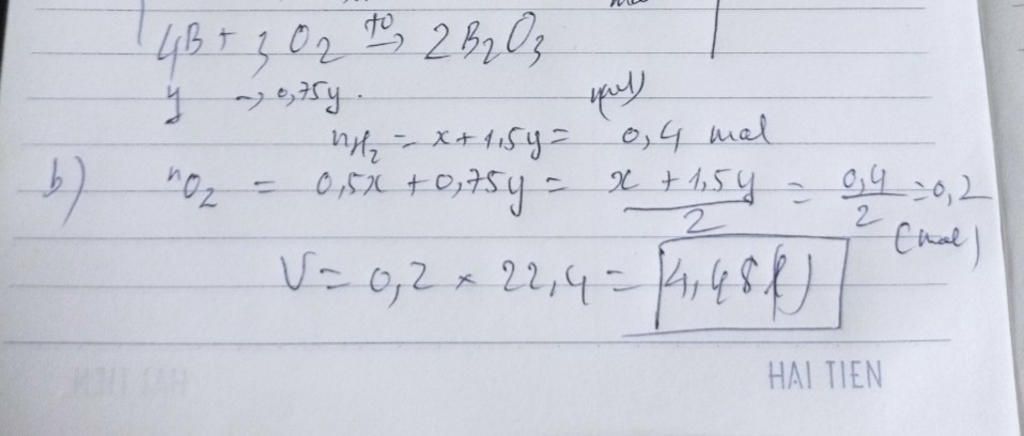 4B + 3O₂ →^{t0} 2B₂O₃
y → 0,75y. (mol)
nH₂ = x + 1,5y = 0,4 mol
b) nO₂ = 0,5x + 0,75y = (x + 1,5y)/2 = 0,4/2 = 0,2 (mol)
V = 0,2 × 22,4 = 4,48 (l)
HAI TIEN